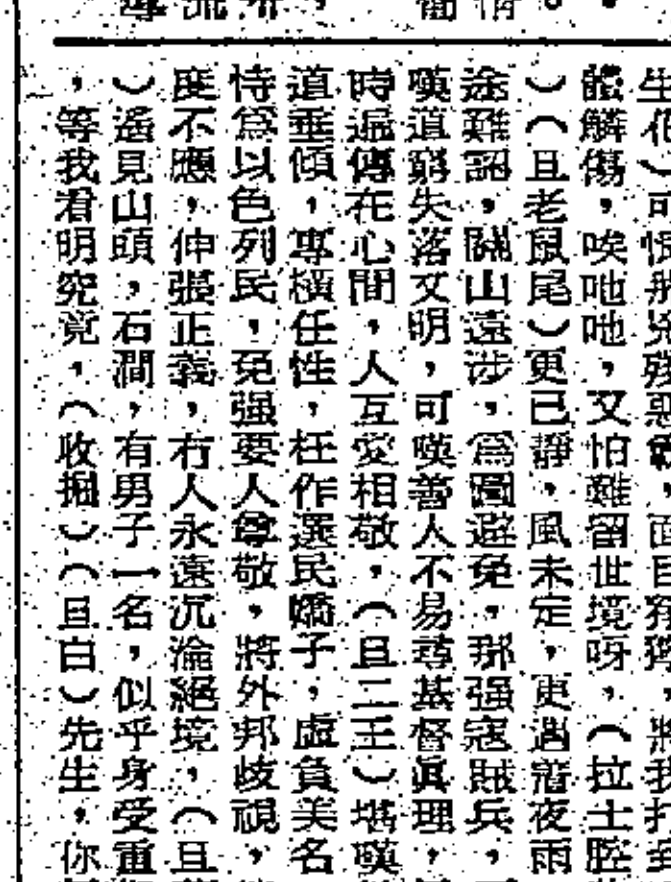 生(旦)可恨
體鱗傷,唉吔吔,又怕難留世境呀,(拉士腔
)(旦老鼠尾)更已靜,風未定,更遇着夜雨
途難認,關山遠涉,爲圖避免,那强寇賊兵,
嘆道窮失落文明,可嘆善人不易尋基督眞理,
時逼傳在心間,人互愛相敬,(旦二王)堪嘆
道垂傾,專橫任性,枉作選民嬌子,虛負美名
恃爲以色列民,免强要人尊敬,將外邦歧視,
度不應,伸張正義,冇人永遠沉淪絕境,(旦
)遙見山頭,石澗,有男子一名,似乎身受重
,等我看明究竟,(收掘)(旦白)先生,你